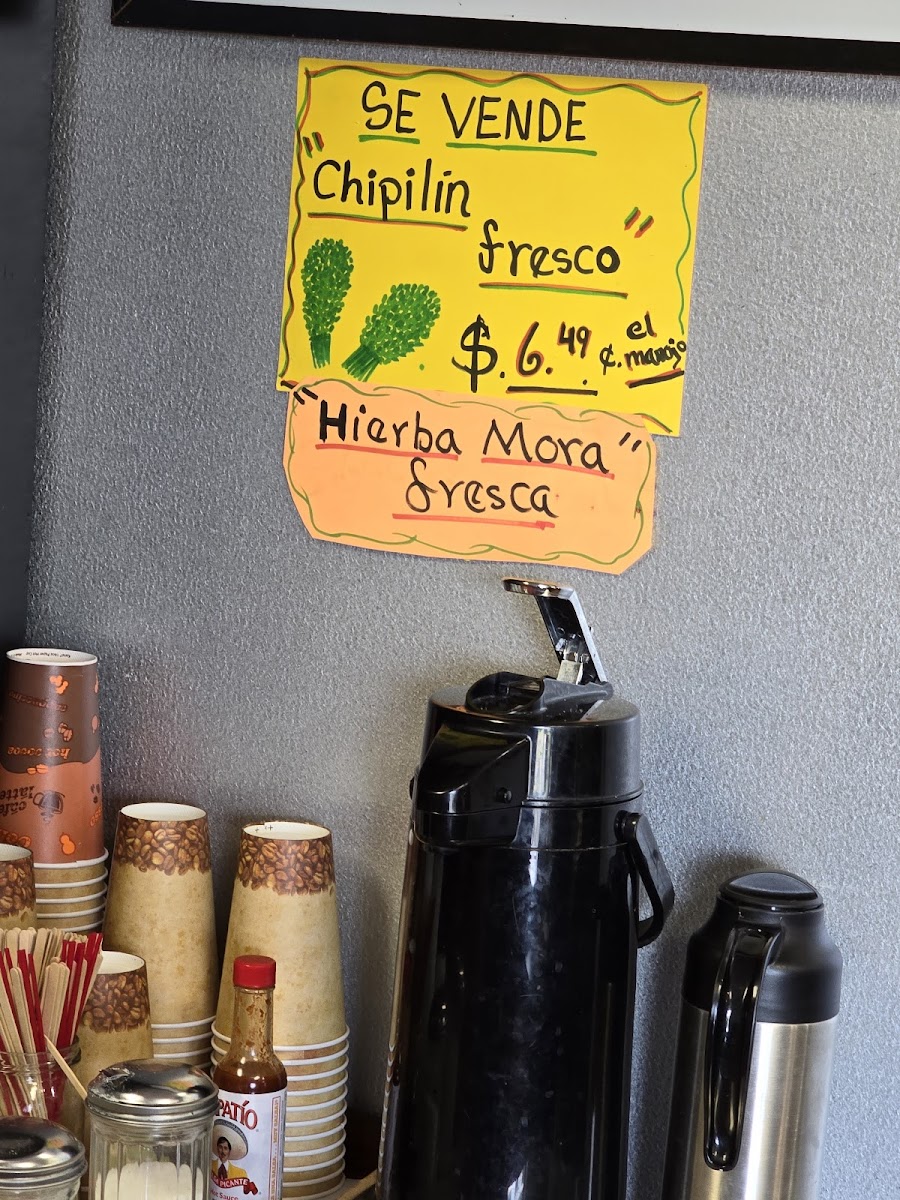 SE VENDE
"Chipilín
fresco"
$.6.49 ¢. el manojo
"Hierba Mora"
fresca
hot cocoa
café
latte
PATÍO
PICANTE